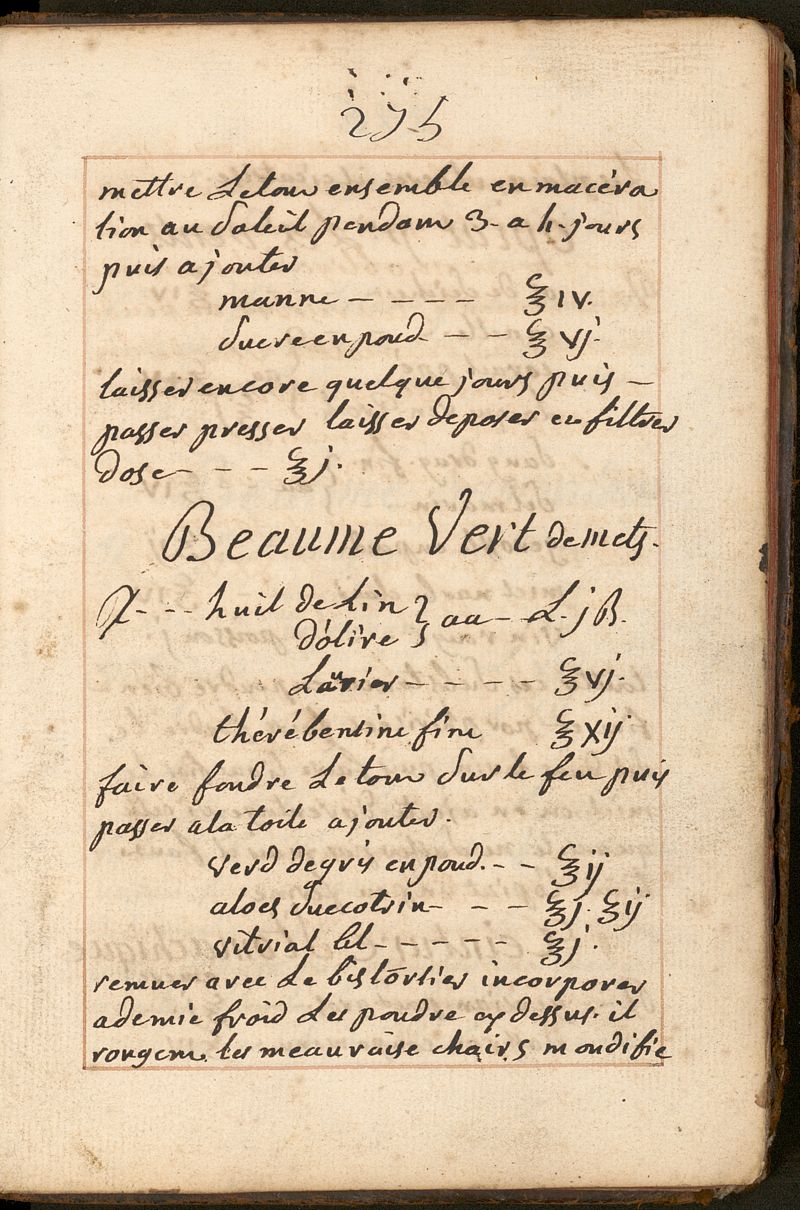 275
mettre Le tout ensemble en macéra
tion au Soleil pendant 3. a 4. jours
puis ajouter
manne - - - - ℥ iv.
Sucre en poud - - ℥ vj.
laisser encore quelque jours puis -
passer presser laisser deposer et filtrer
Dose - - - ℥ j.
Beaume Vert de mets.
℞ - - - huil de Lin } aa - L. j ß.
d'olive
Laurier - - - - - ℥ vj.
thérébentine fine ℥ xij
faire fondre Le tout Sur le feu puis
passer a la toile ajouter.
verd de gris en poud. - - ℥ ij
aloes Sucotrin - - - ℥ j. ℥ ij
vitrial bl - - - - - ℥ j.
remuer avec Le bistortier incorporer
a demie froid Les poudre cy dessus. il
rongent les meauvaise chairs mondifie